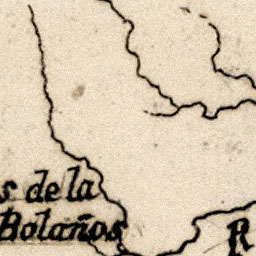 s de la
Bolaños
R